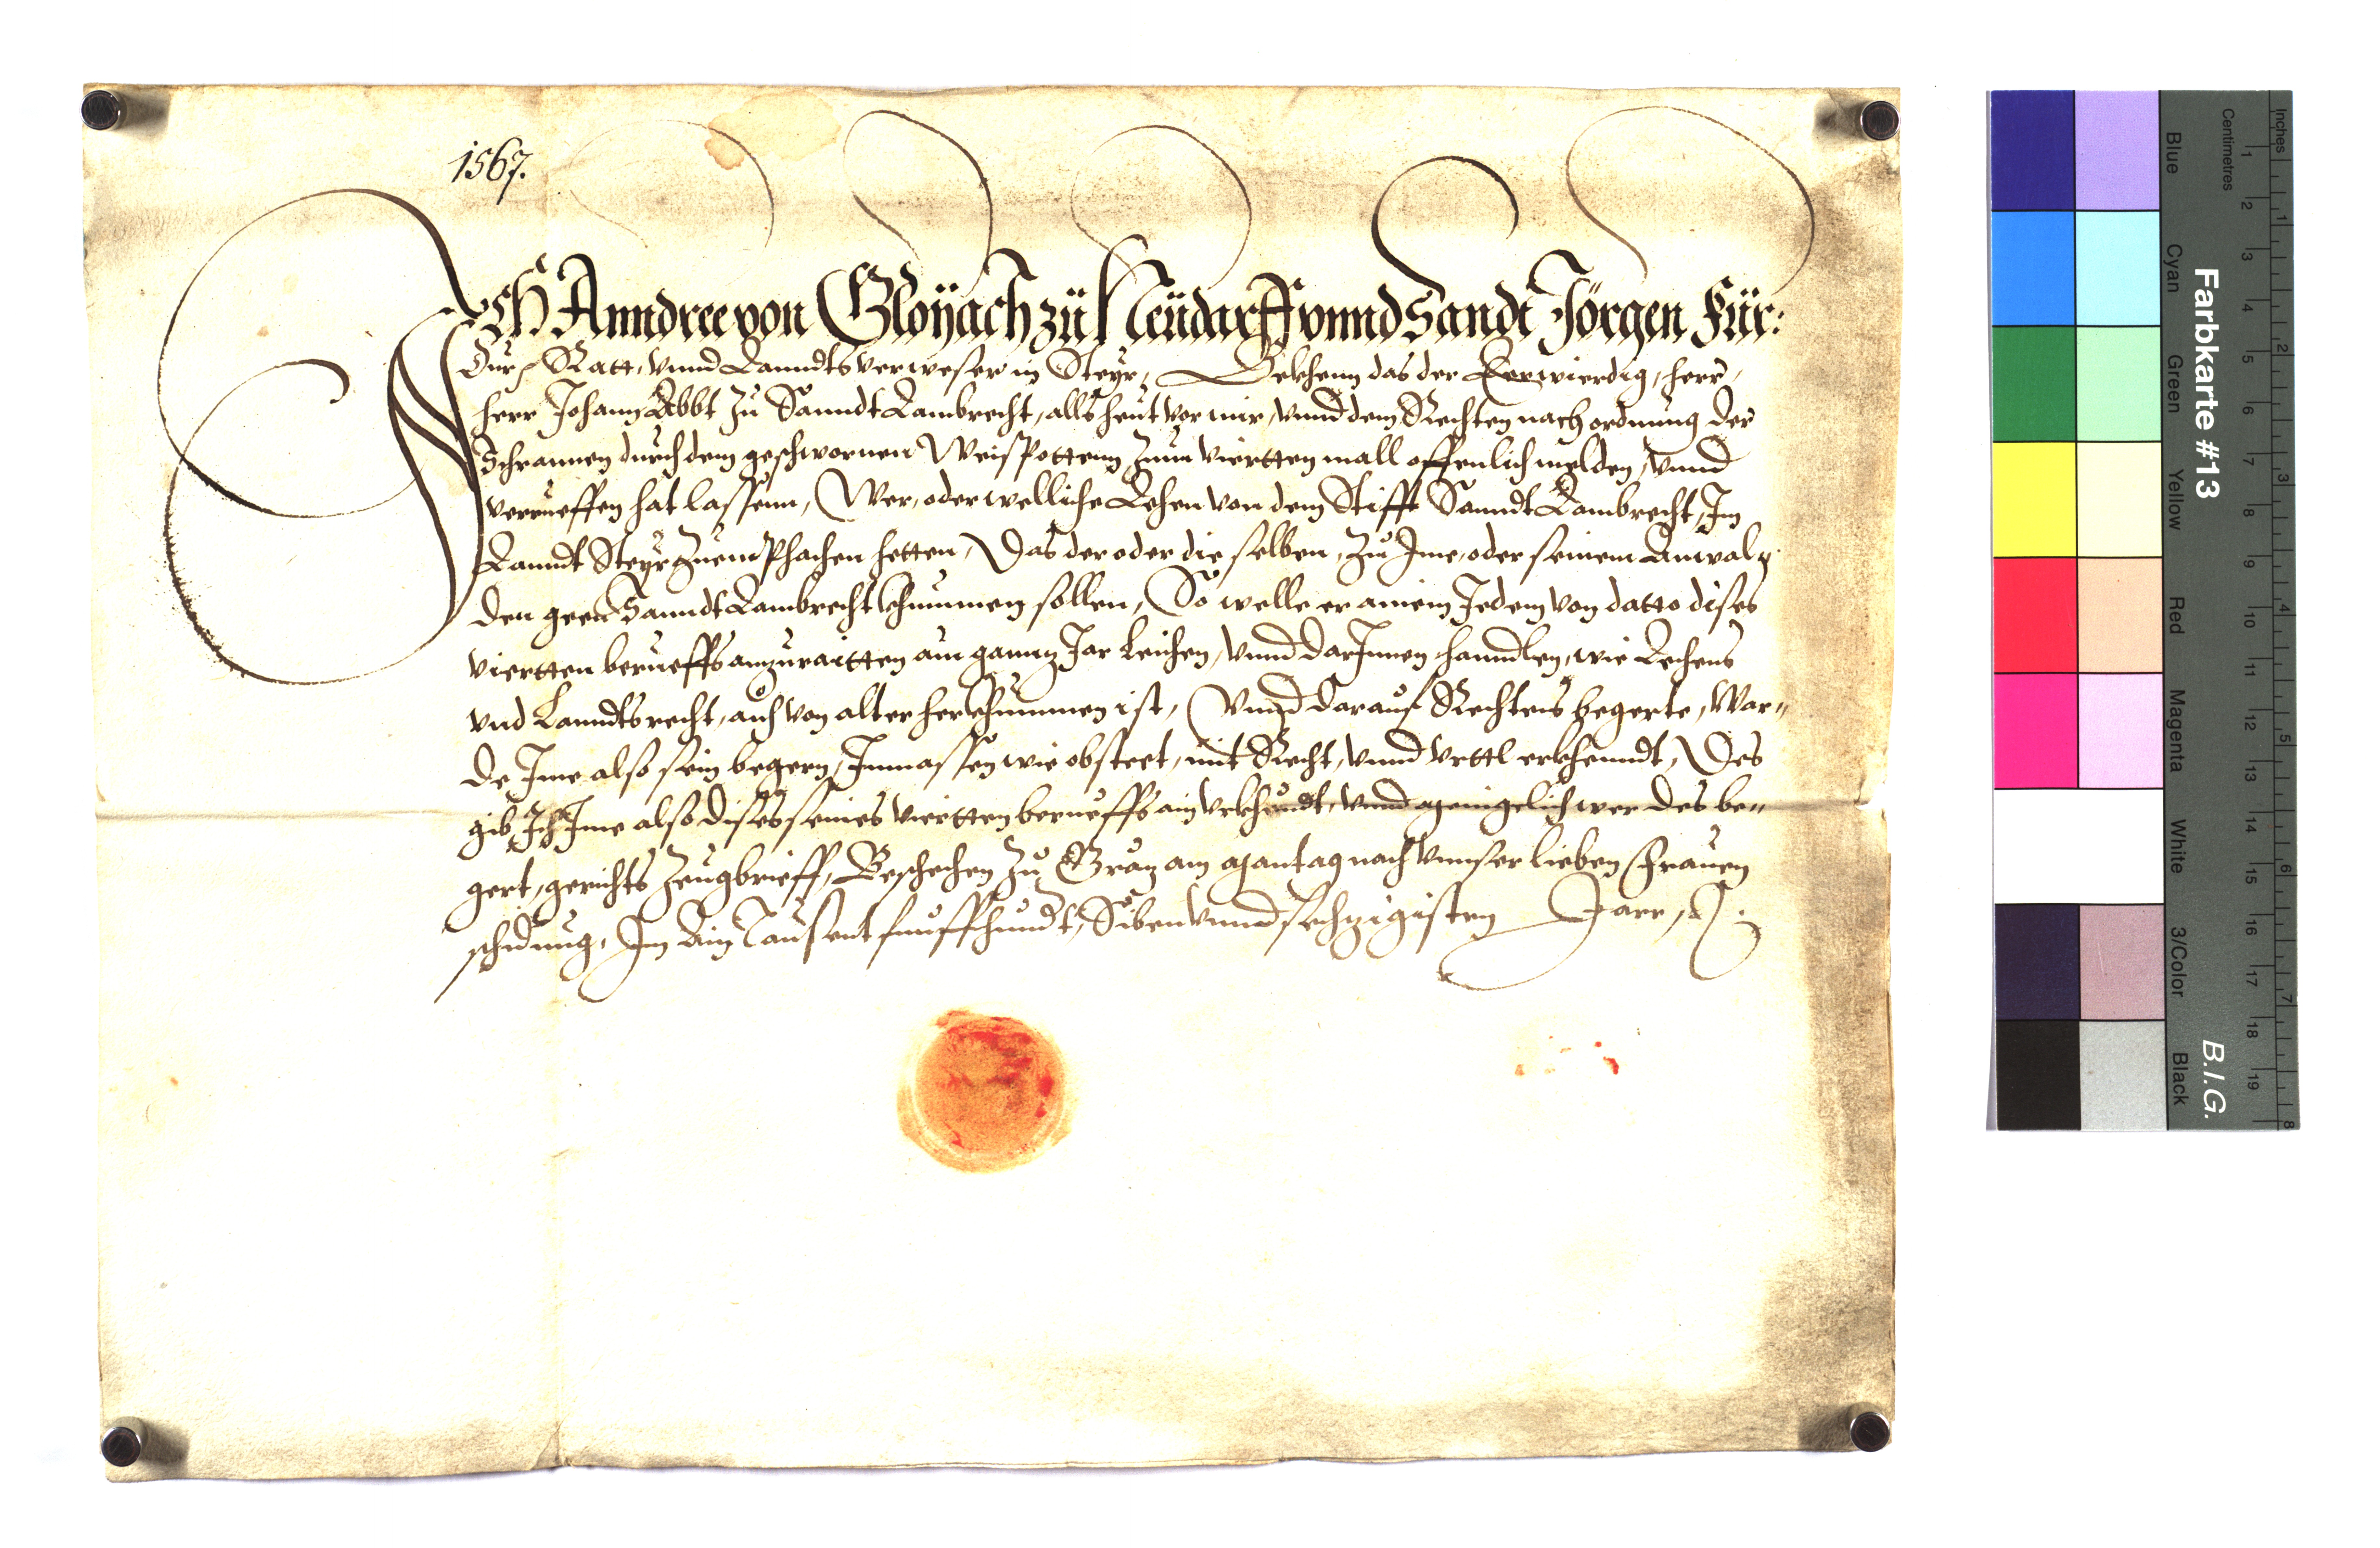 1567.
Ich Anndree von Gloÿach zü Neüdarff vnnd Sandt Jörgen Für:
Dur: Ratt, vnnd Lanndtsverweser in Steÿr, Bekhenn das der Eerwierdig, herr,
herr Johann Abbt zu Sanndt Lambrecht, alls heut vor mir, vnnd dem Rechten nach ordnung der
Schrannen durch dem geschwornnen Weispottenn zum Viertten mall offenlich melden, vnnd
verrueffen hat lassenn, Wer, oder welliche Lehen von dem Stifft Sanndt Lambrecht, Im
Lanndt Steÿr zuemphachen hetten, Das der oder die selben, zu Ime, oder seinem Anwal
den geen Sanndt Lambrecht khummen sollen, So welle er ainem Jedem von datto dises
viertten berueffs anzuraitten ain gannz Jar Leichen, vnnd darInnen hanndlen, wie Lechens
vnd Lanndtsrecht, auch von alter herkhummen ist, Vnnd darauf Rechtens begerte, War„
de Ime also sein begern, Inmassen wie obsteet, mit Recht, vnnd vrttl erkhenndt, Des
gib Ich Ime also dises seines viertten berueffs ain vrkhundt, vnnd menigelich wer des be„
gert, gerichts Zeugbrieff, Beschechen zu Graz am Mantag nach Vnnser lieben Frauen
schidung, Im Ain Tausent funffhundt, Siben vnnd sechzigisten Jarr,
Farbkarte #13
B.I.G.
Inches
Centimetres
1 2 3 4 5 6 7 8
1 2 3 4 5 6 7 8 9 10 11 12 13 14 15 16 17 18 19
Blue
Cyan
Green
Yellow
Red
Magenta
White
3/Color
Black